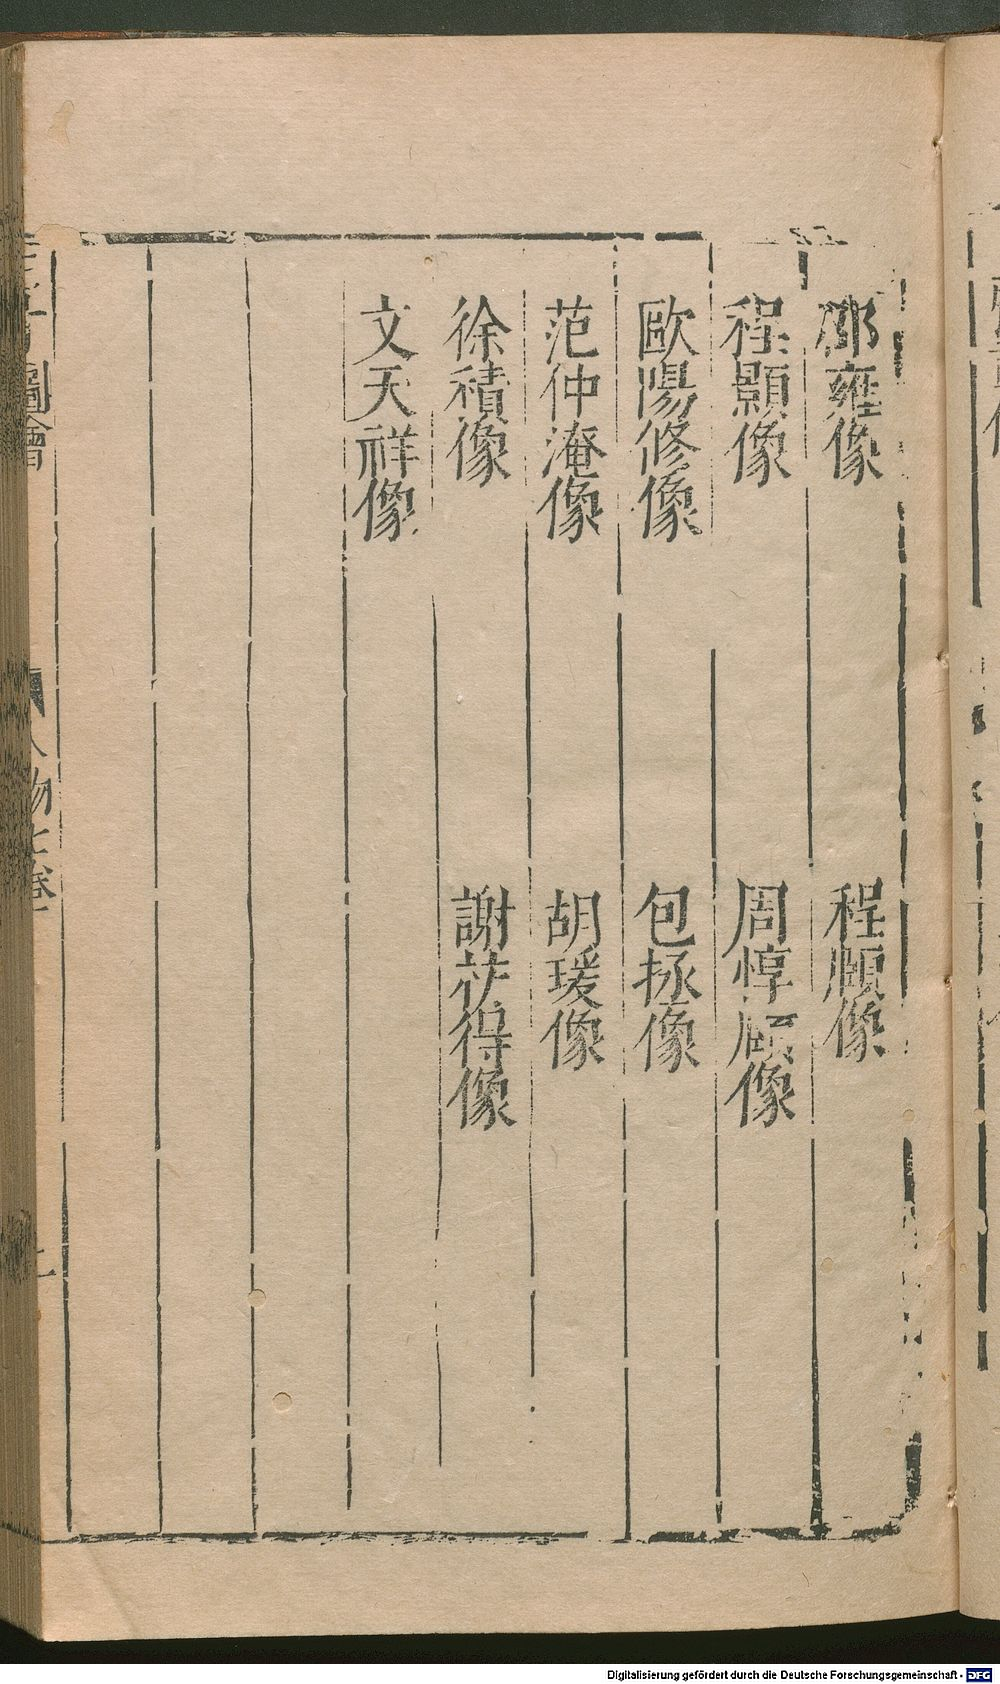 邵雍像
程頤像
程顥像
周惇頤像
歐陽修像
包拯像
范仲淹像
胡瑗像
徐積像
謝枋得像
文天祥像
圖會
人物七卷
Digitalisierung gefördert durch die Deutsche Forschungsgemeinschaft - DFG